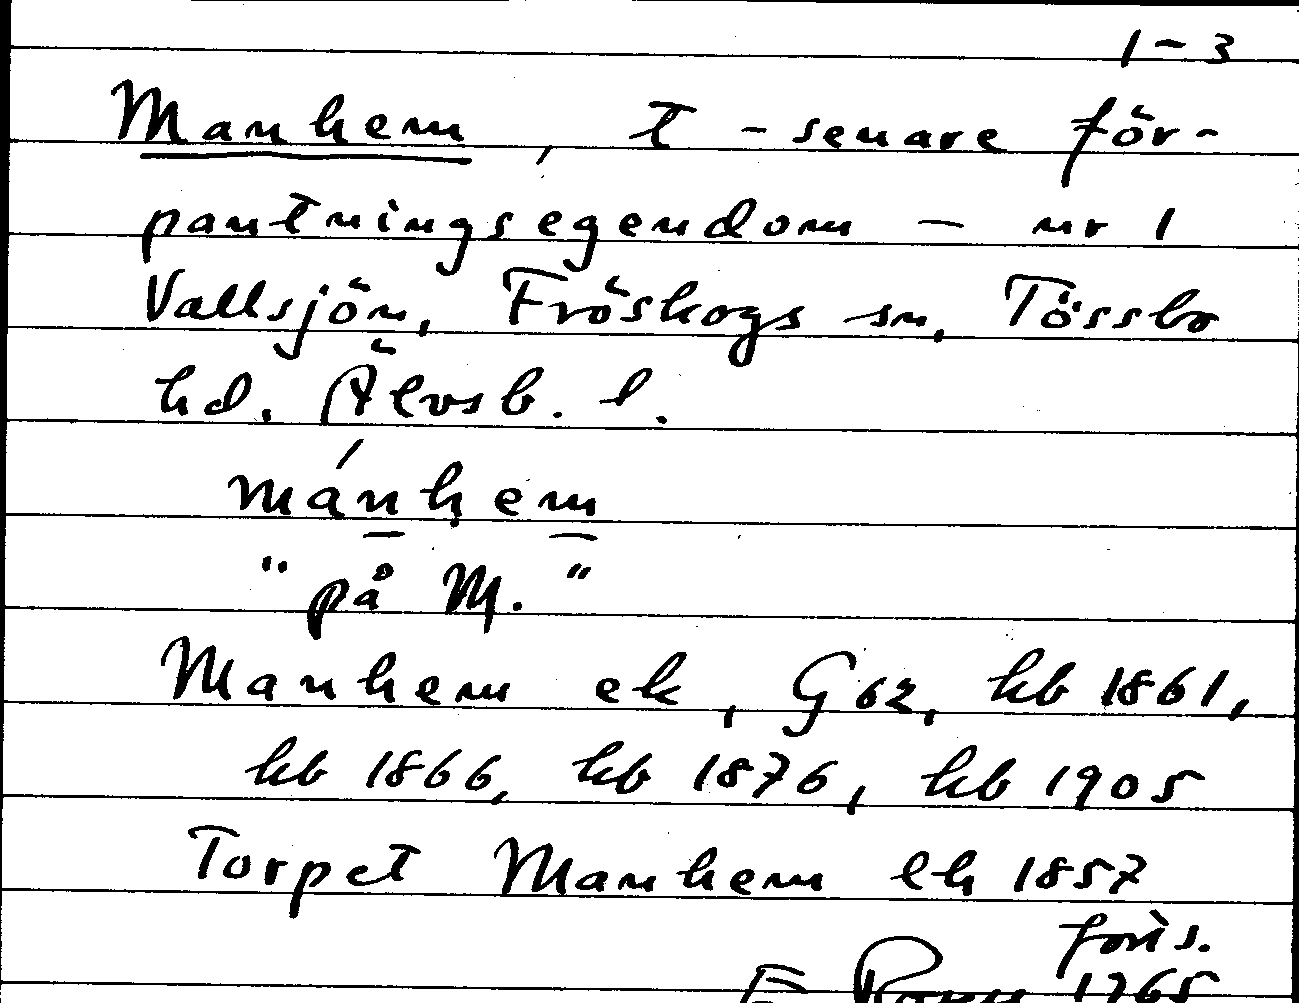 1-3
Manhem, t - senare för-
pantningsegendom - nr 1
Vallsjön, Fröskogs sn, Tössbo
hd. Älvsb. l.
mánhem
"på M."
Manhem ek, G 62, hb 1861,
hb 1866, hb 1876, hb 1905
Torpet Manhem lh 1857
forts.
1965